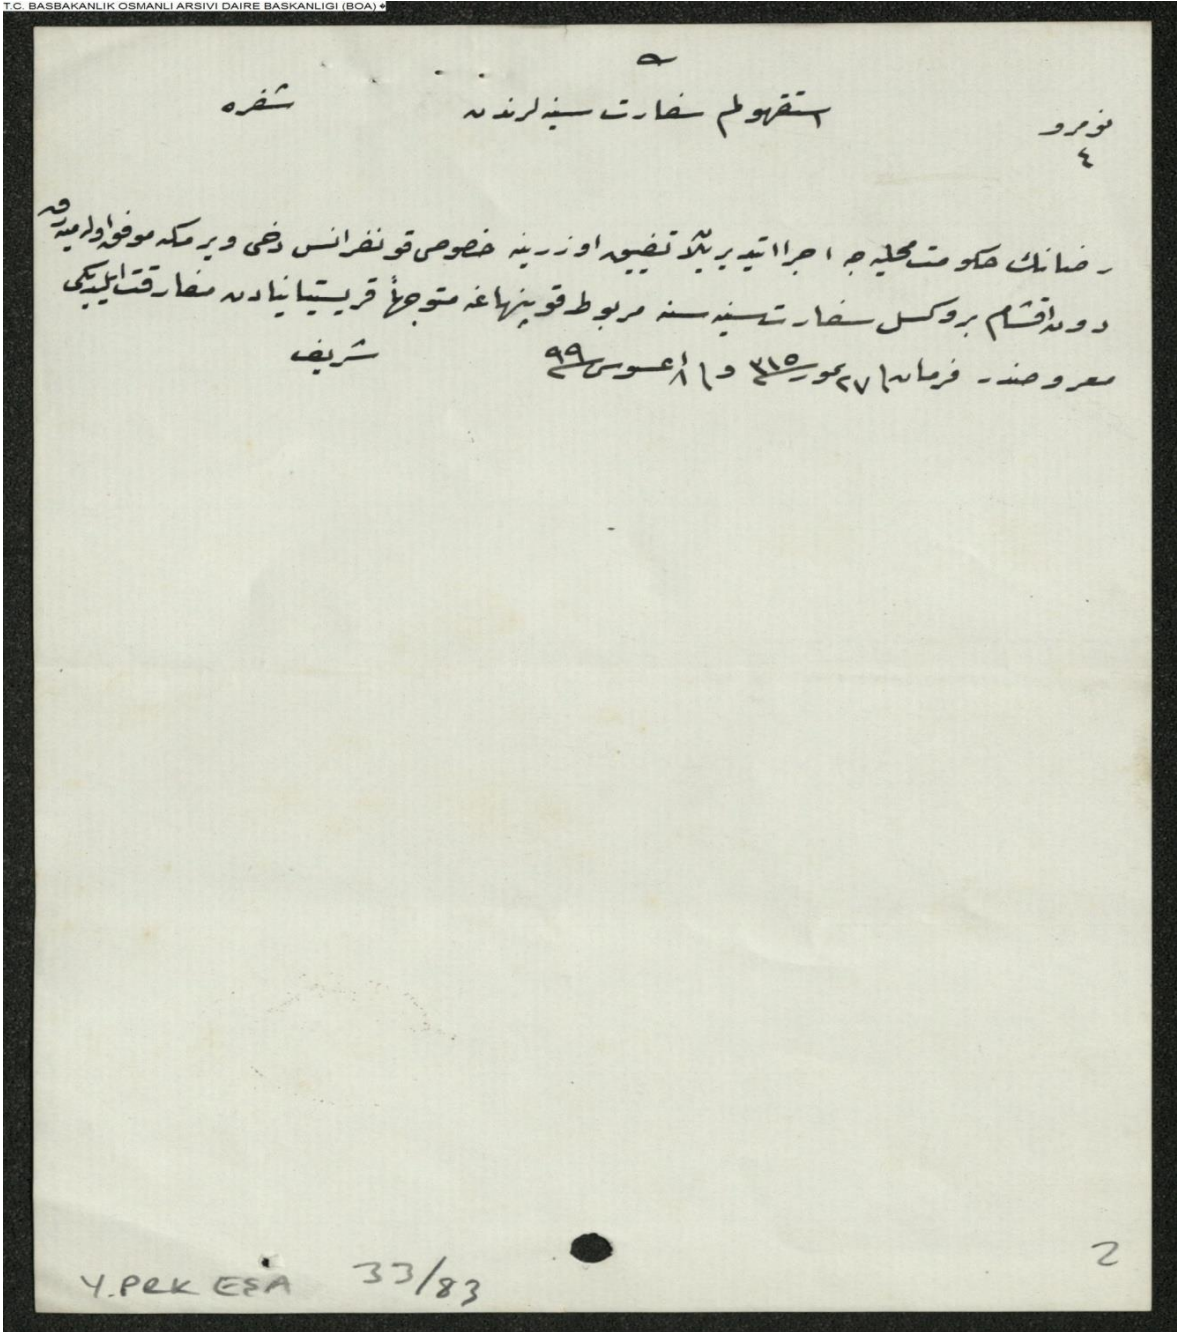 T.C. BASBAKANLIK OSMANLI ARSIVI DAIRE BASKANLIGI (BOA)
نومرو
٤
استقهولم سفارت سنیه لرندن شفره
رضانك حکومت محلیه جه اجرا ایتدیریلان تضییق اوزرینه خصوصی قونفرانس دخی ویرمکه موفق اوله میه رق
دون اقشام بروکسل سفارت سنیه سنه مربوط قوپنهاغه متوجهاً قریستیانیادن مفارقت ایلدیکی
معروضدر فرمان ٢٧ تموز ٣١٥ و ٨ اغستوس ٩٩ شریف
Y.PRK ESA 33/83
2